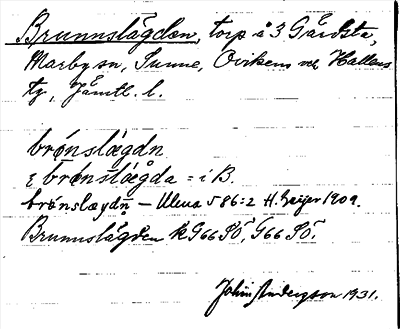 Brunnslägden, torp å 3 Gärdsta,
Marby sn, Sunne, Ovikens och Hallens
tg, Jämtl. l.
brónslǽgdn
brónslǽgda = i B.
brónslæydn̥ – Ulma 586:2 H. Geijer 1909.
Brunnslägden k G66 Sö, G66 Sö.
John Andersson 1931.